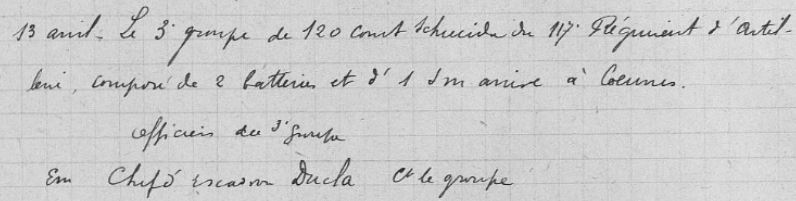 13 avril. Le 3e groupe de 120 court Schneider du 117e Régiment d'Artil-
lerie, composé de 2 batteries et d'1 S m arrive à
officiers du 3e groupe
Em Chef d'escadron Ducla Ct le groupe